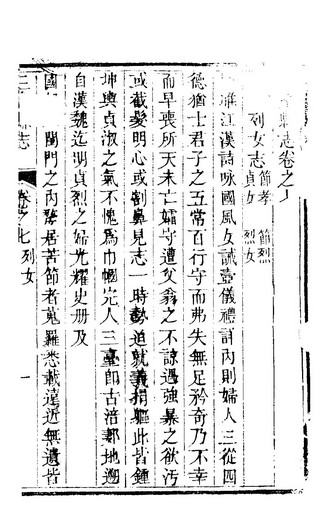 縣志卷之
列女志 節孝 節烈
貞女 烈女
雎江漢詩咏國風女誡壼儀禮詳內則婦人三從四
德猶士君子之五常百行守而弗失無足矜奇乃不幸
而早喪所天未亡孀守遭父翁之不諒遇強暴之欲汚
或截髮明心或劓鼻見志一時勢迫就義捐軀此皆鍾
坤輿貞淑之氣不愧爲巾幗完人三臺即古涪郪地遡
自漢魏迄明貞烈之婦光耀史册及
國 閨門之內嫠居苦節者蒐羅悉載遠近無遺皆
三 志 卷之七 列女 一